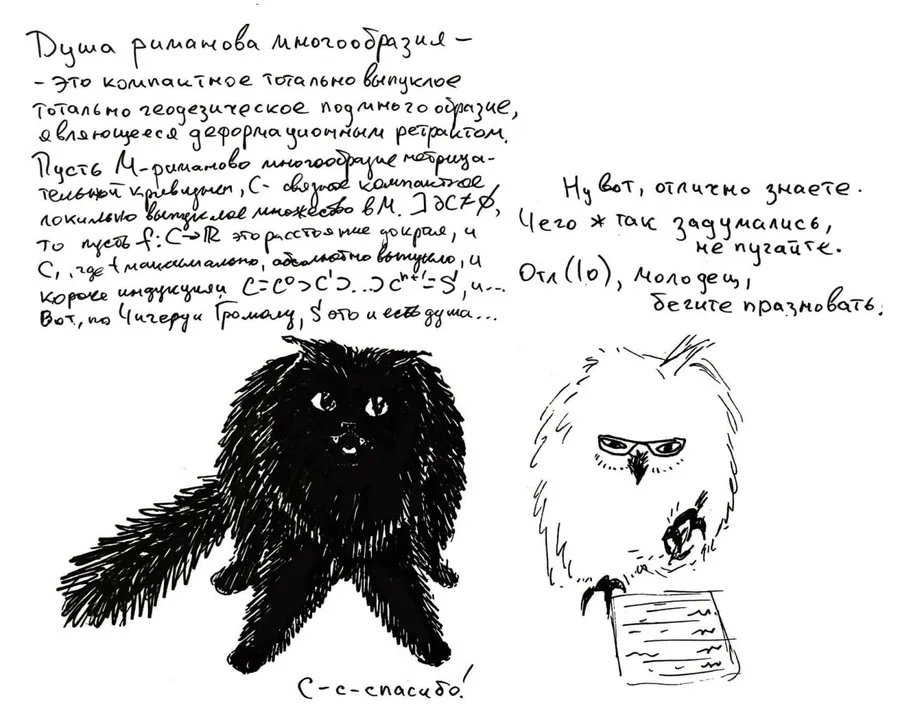 Душа риманова многообразия –
– это компактное тотально выпуклое
тотально геодезическое подмногообразие,
являющееся деформационным ретрактом.
Пусть M-риманово многообразие неотрица-
тельной кривизны, C- связное компактное
локально выпуклое множество в M. ] ∂C≠∅,
то пусть f: C→ℝ это расстояние до края, и
C₁, где f максимально, абсолютно выпукло, и
короче индукцией C=C⁰⊃C¹⊃...⊃Cⁿ⁺¹=S, и...
Вот, по Чигеру и Громолу, S это и есть душа...
Ну вот, отлично знаете.
Чего ж так задумались,
не пугайте.
Отл(10), молодец,
бегите праздновать.
С-с-спасибо!